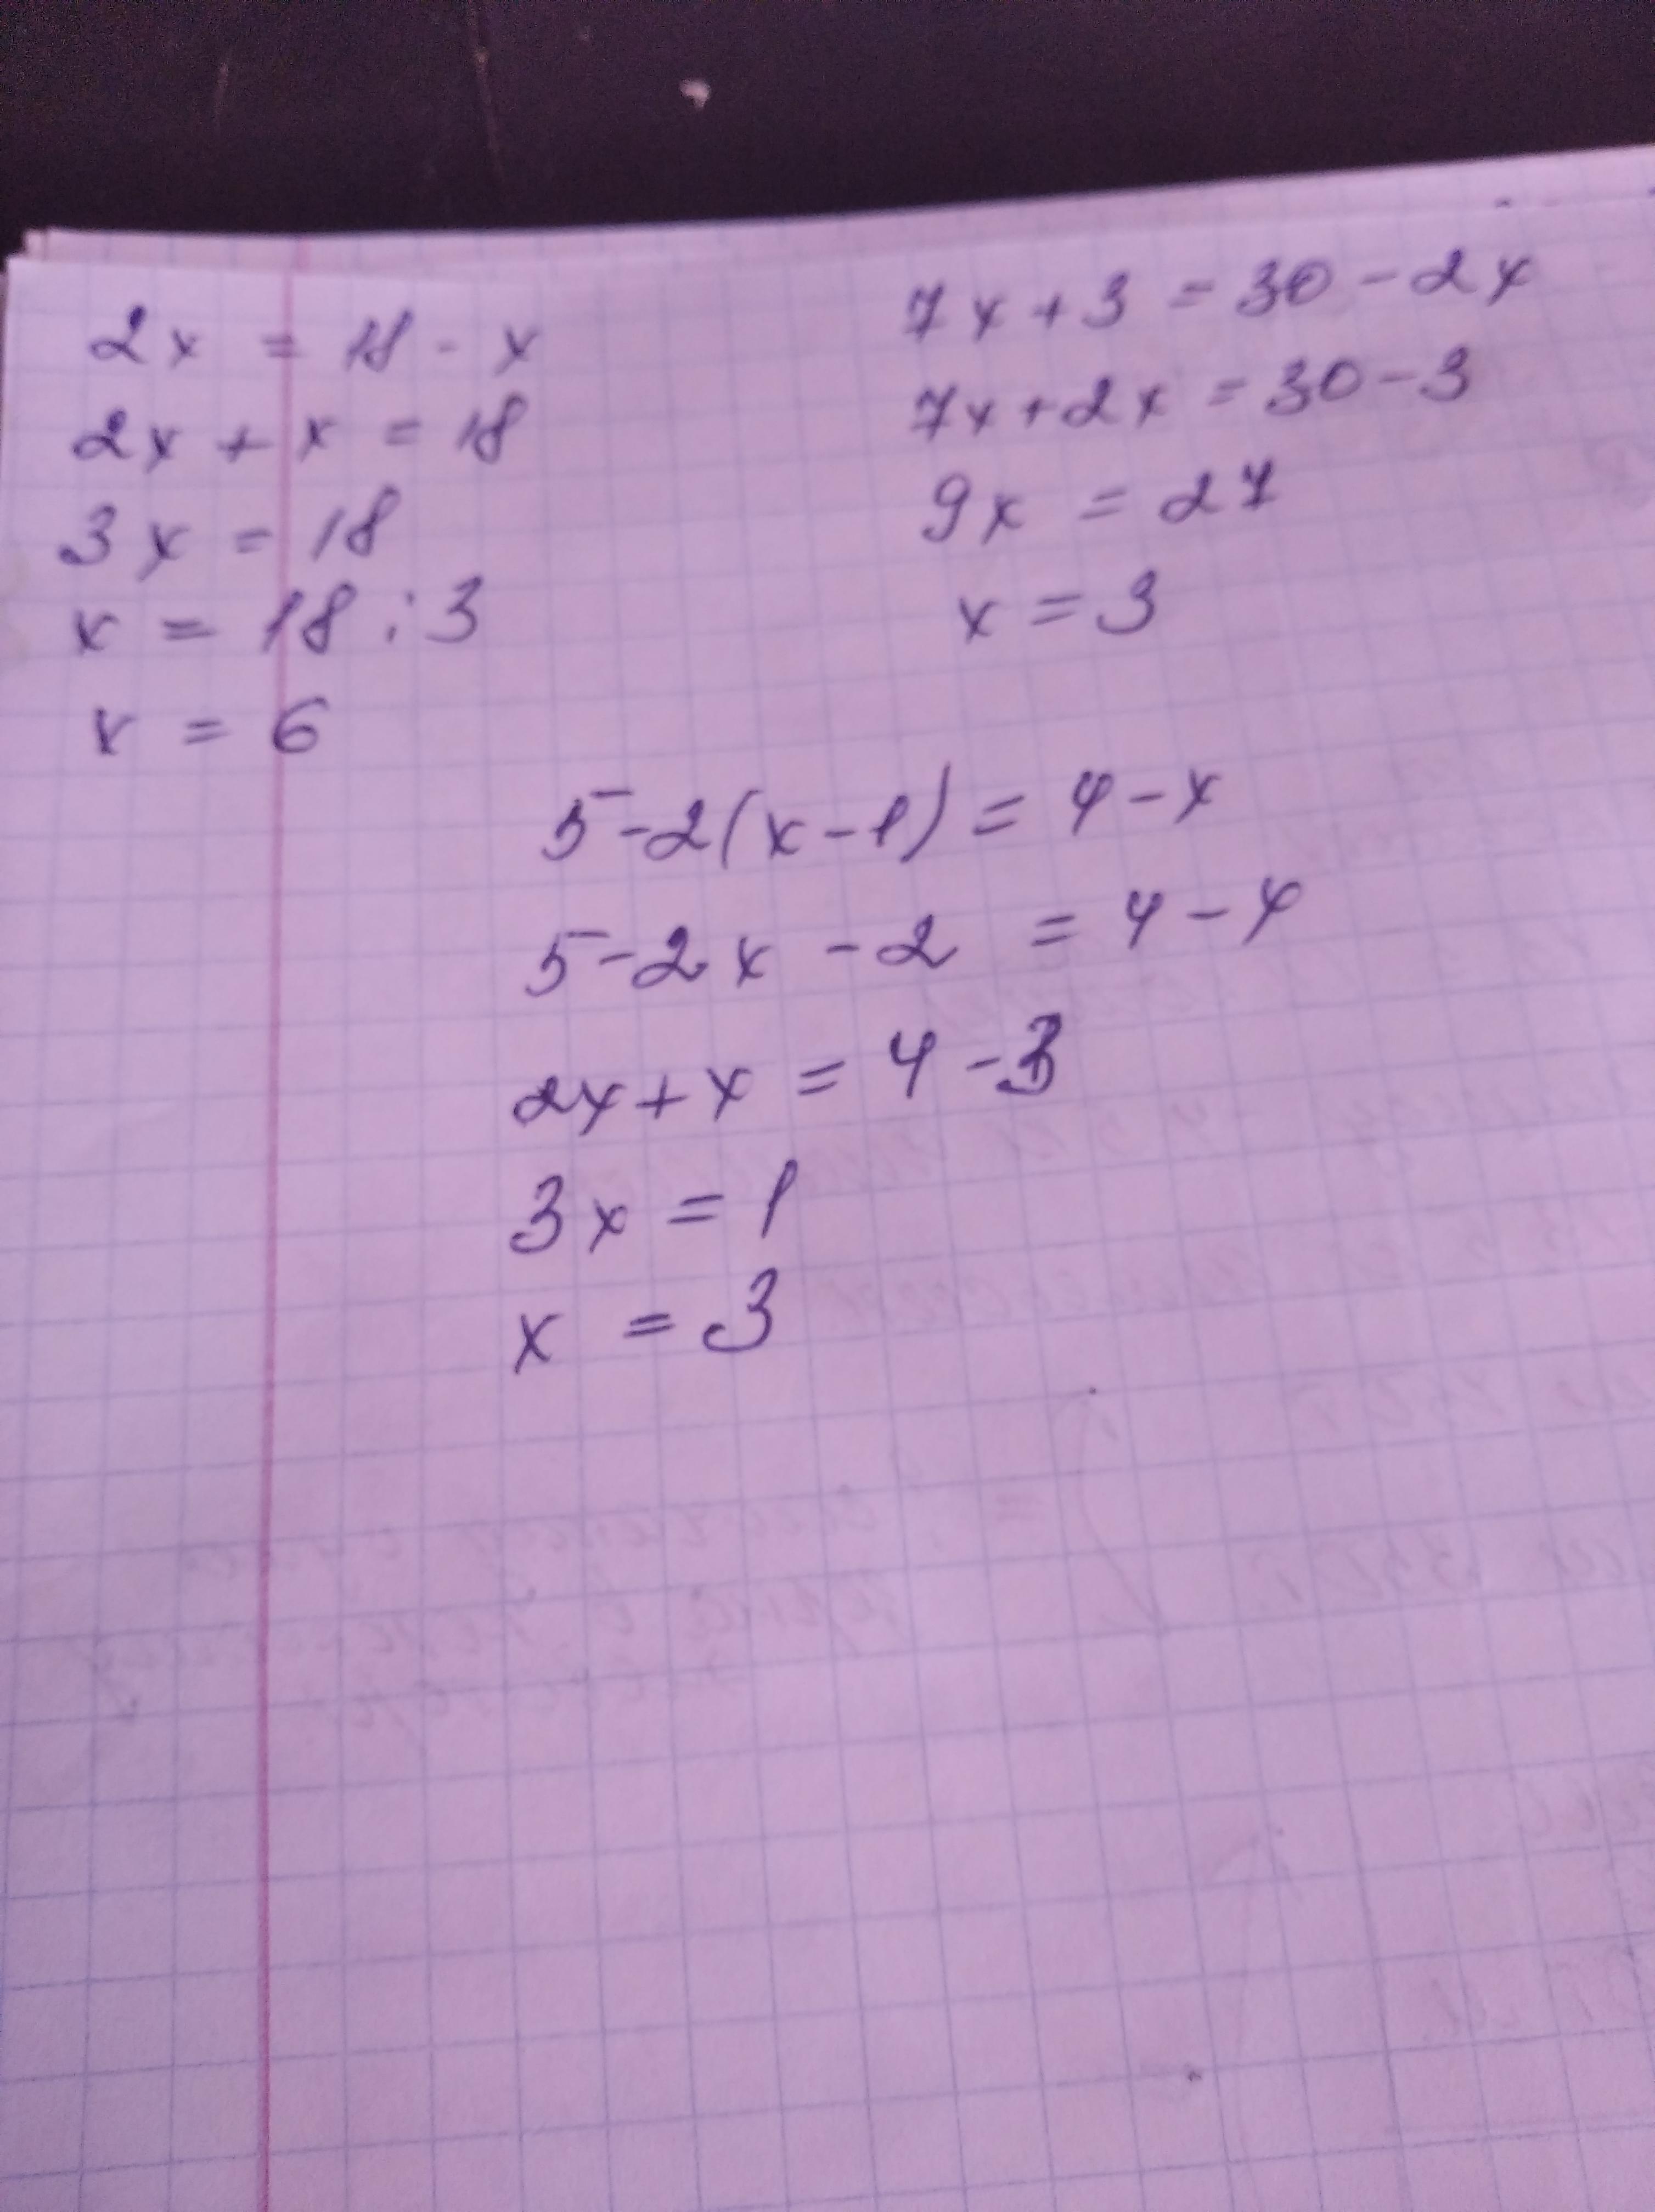 2x = 18 - x
2x + x = 18
3x = 18
x = 18 : 3
x = 6
7x + 3 = 30 - 2x
7x + 2x = 30 - 3
9x = 27
x = 3
5 - 2(x - 1) = 4 - x
5 - 2x - 2 = 4 - x
2x + x = 4 - 3
3x = 1
x = 3